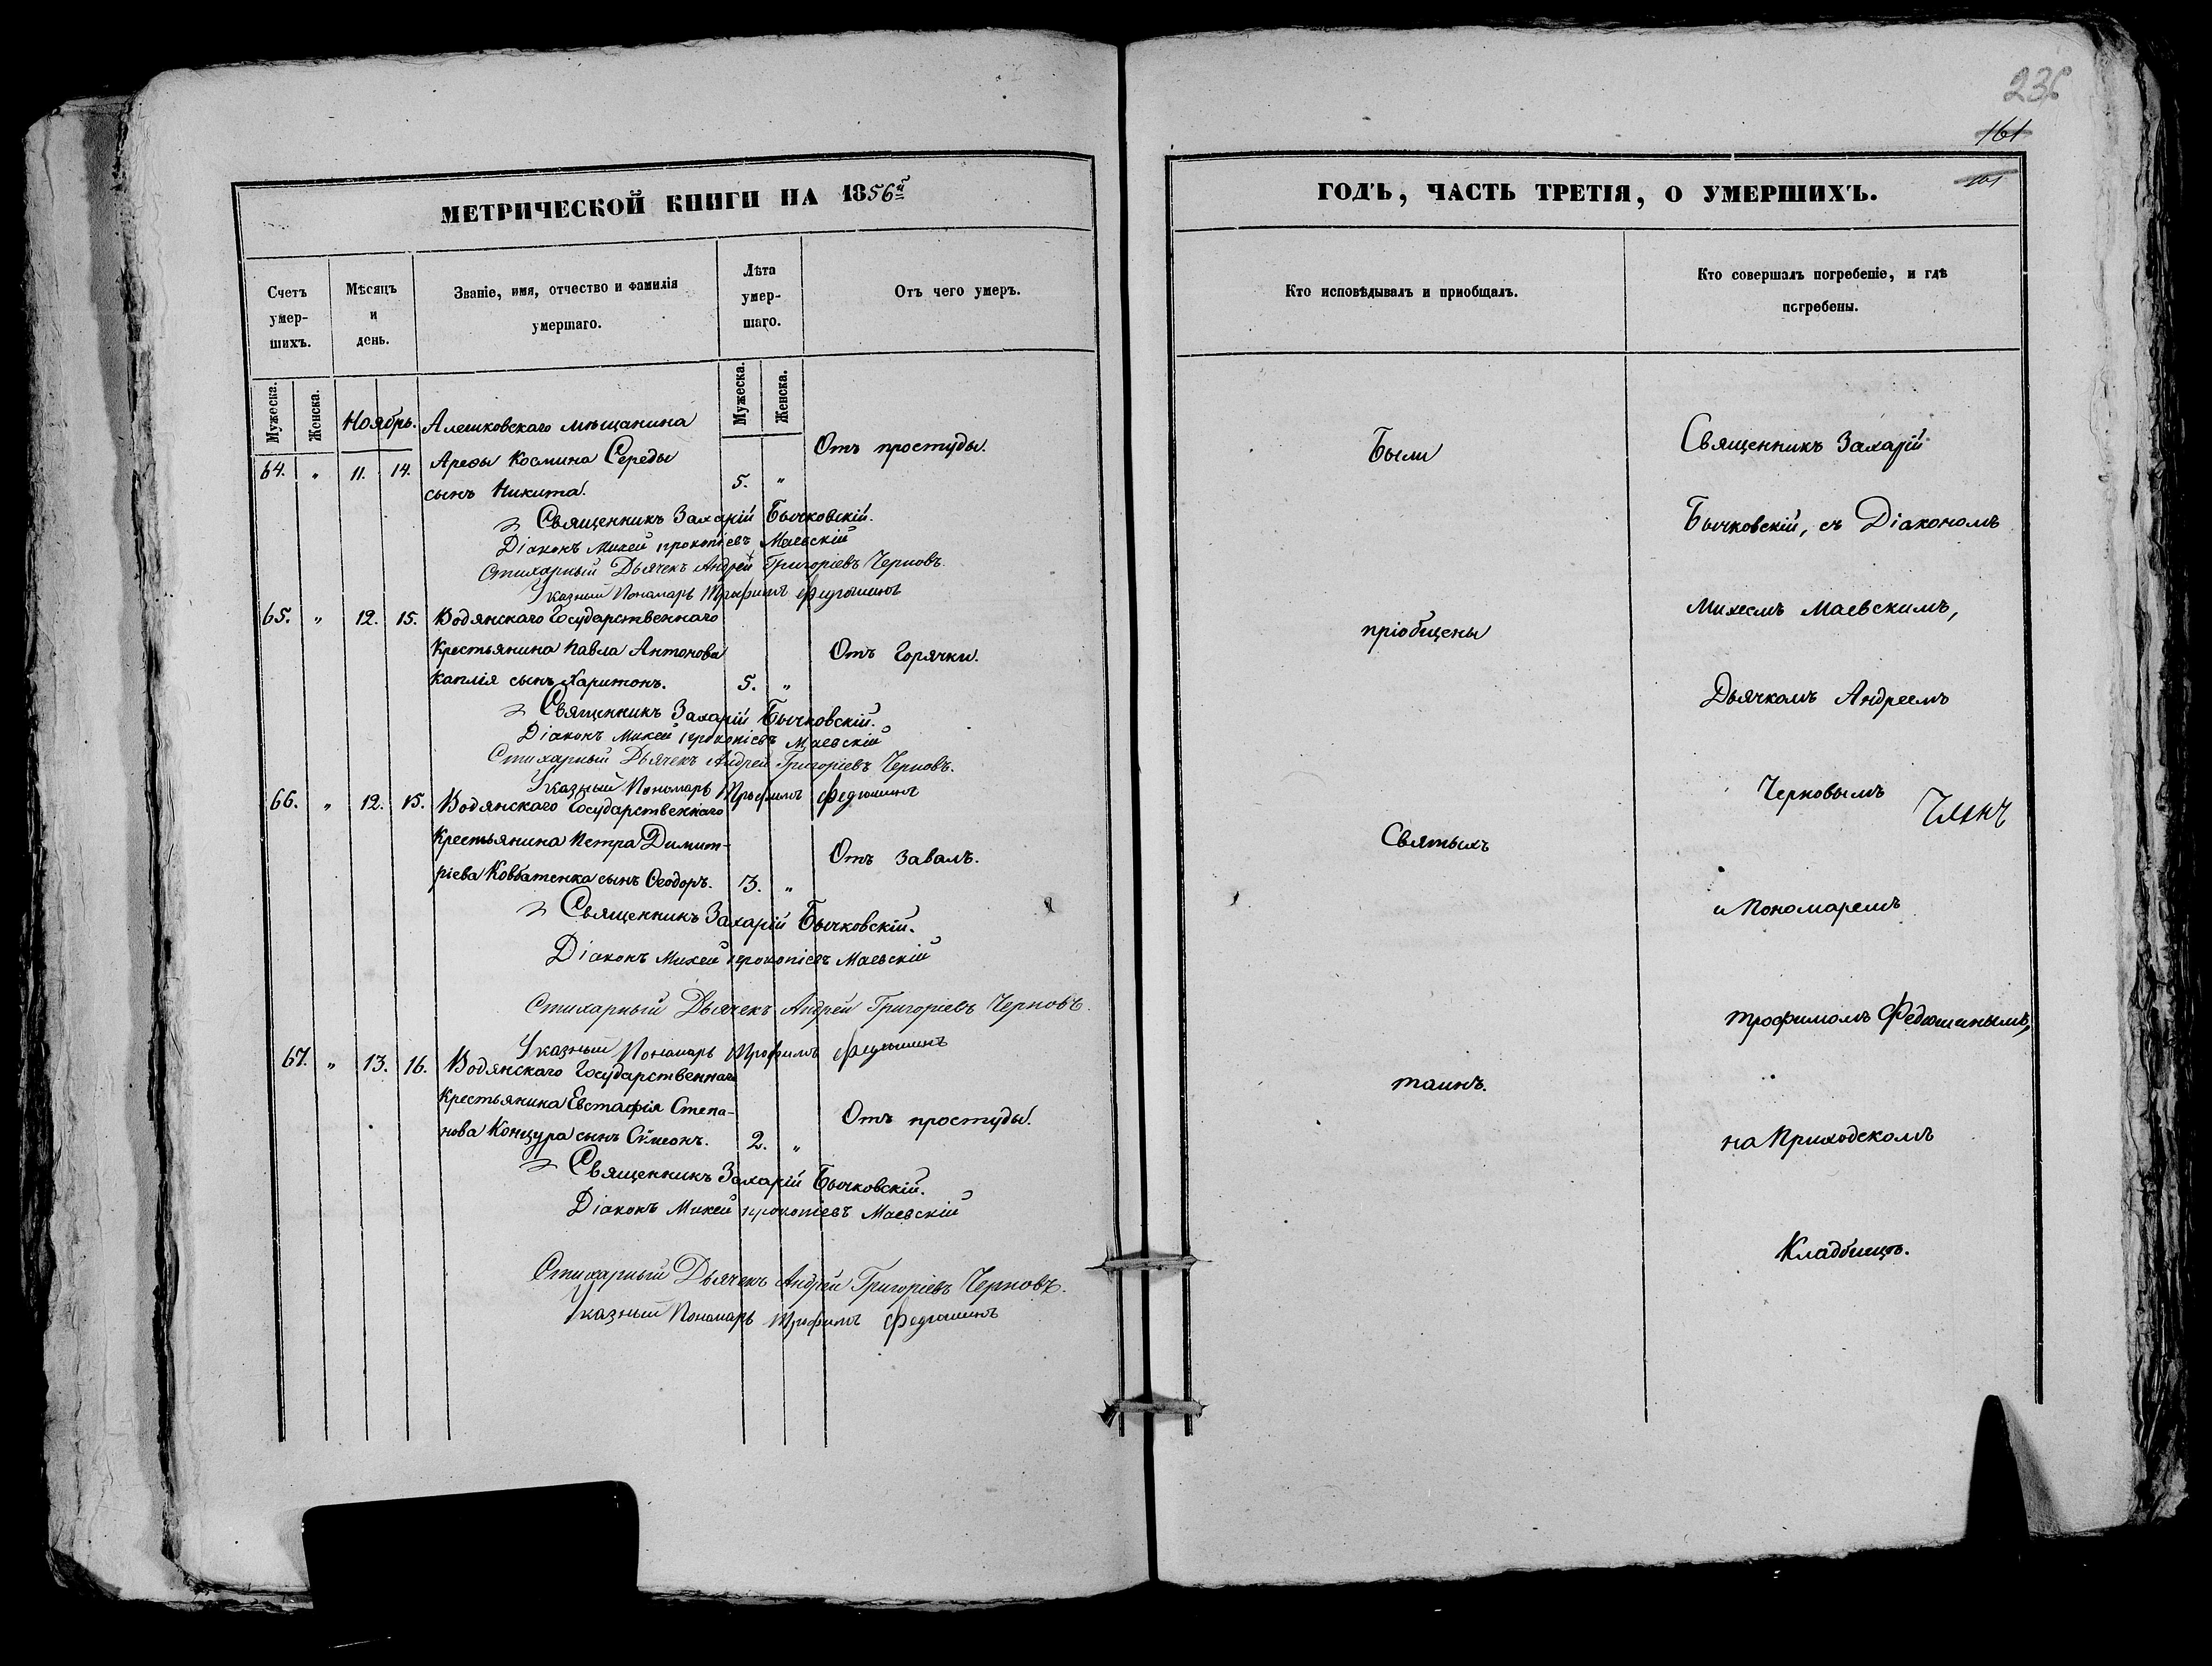 МЕТРИЧЕСКОЙ КНИГИ НА 1856й
Счетъ умер-шихъ.
Мѣсяцъ и день.
Званіе, имя, отчество и фамилія умершаго.
Лѣта умер-шаго.
Отъ чего умеръ.
Мужеска.
Женска.
Мужеска.
Женска.
Ноябрь.
Алешковскаго мѣщанина
64. " 11. 14. Арефы Космина Середы
Отъ простуды.
сынъ Никита. 5. "
Священникъ Захарій Бычковскій.
Діаконъ Михей Прокопіевъ Маевскій
Стихарный Дьячекъ Андрей Григоріевъ Черновъ.
Указный Пономарь Трофимъ Федюшинъ
65. " 12. 15. Водянскаго Государственнаго
Крестьянина Павла Антонова
Отъ Горячки.
Каплія сынъ Харитонъ. 5. "
Священникъ Захарій Бычковскій.
Діаконъ Михей Прокопіевъ Маевскій
Стихарный Дьячекъ Андрей Григоріевъ Черновъ.
Указный Пономарь Трофимъ Федюшинъ
66. " 12. 15. Водянскаго Государственнаго
Крестьянина Петра Димит-
Отъ завалъ.
ріева Ковбатенка сынъ Ѳеодоръ. 3. "
Священникъ Захарій Бычковскій.
Діаконъ Михей Прокопіевъ Маевскій
Стихарный Дьячекъ Андрей Григоріевъ Черновъ.
Указный Пономарь Трофимъ Федюшинъ
67. " 13. 16. Водянскаго Государственнаго
Крестьянина Евстафія Степа-
Отъ простуды.
нова Концура сынъ Сѵмеонъ. 2. "
Священникъ Захарій Бычковскій.
Діаконъ Михей Прокопіевъ Маевскій
Стихарный Дьячекъ Андрей Григоріевъ Черновъ.
Указный Пономарь Трофимъ Федюшинъ
161
161
ГОДЪ, ЧАСТЬ ТРЕТІЯ, О УМЕРШИХЪ.
Кто исповѣдывалъ и пріобщалъ.
Кто совершалъ погребеніе, и гдѣ
погребены.
Были
пріобщены
Святыхъ
таинъ.
Священникъ Захарій
Бычковскій, съ Діакономъ
Михеемъ Маевскимъ,
Дьячкомъ Андреемъ
Черновымъ
и Пономаремъ
Трофимомъ Федюшинымъ,
на Приходскомъ
Кладбищѣ.